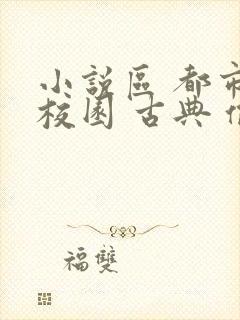 小說區 都市
校園 古典
福雙